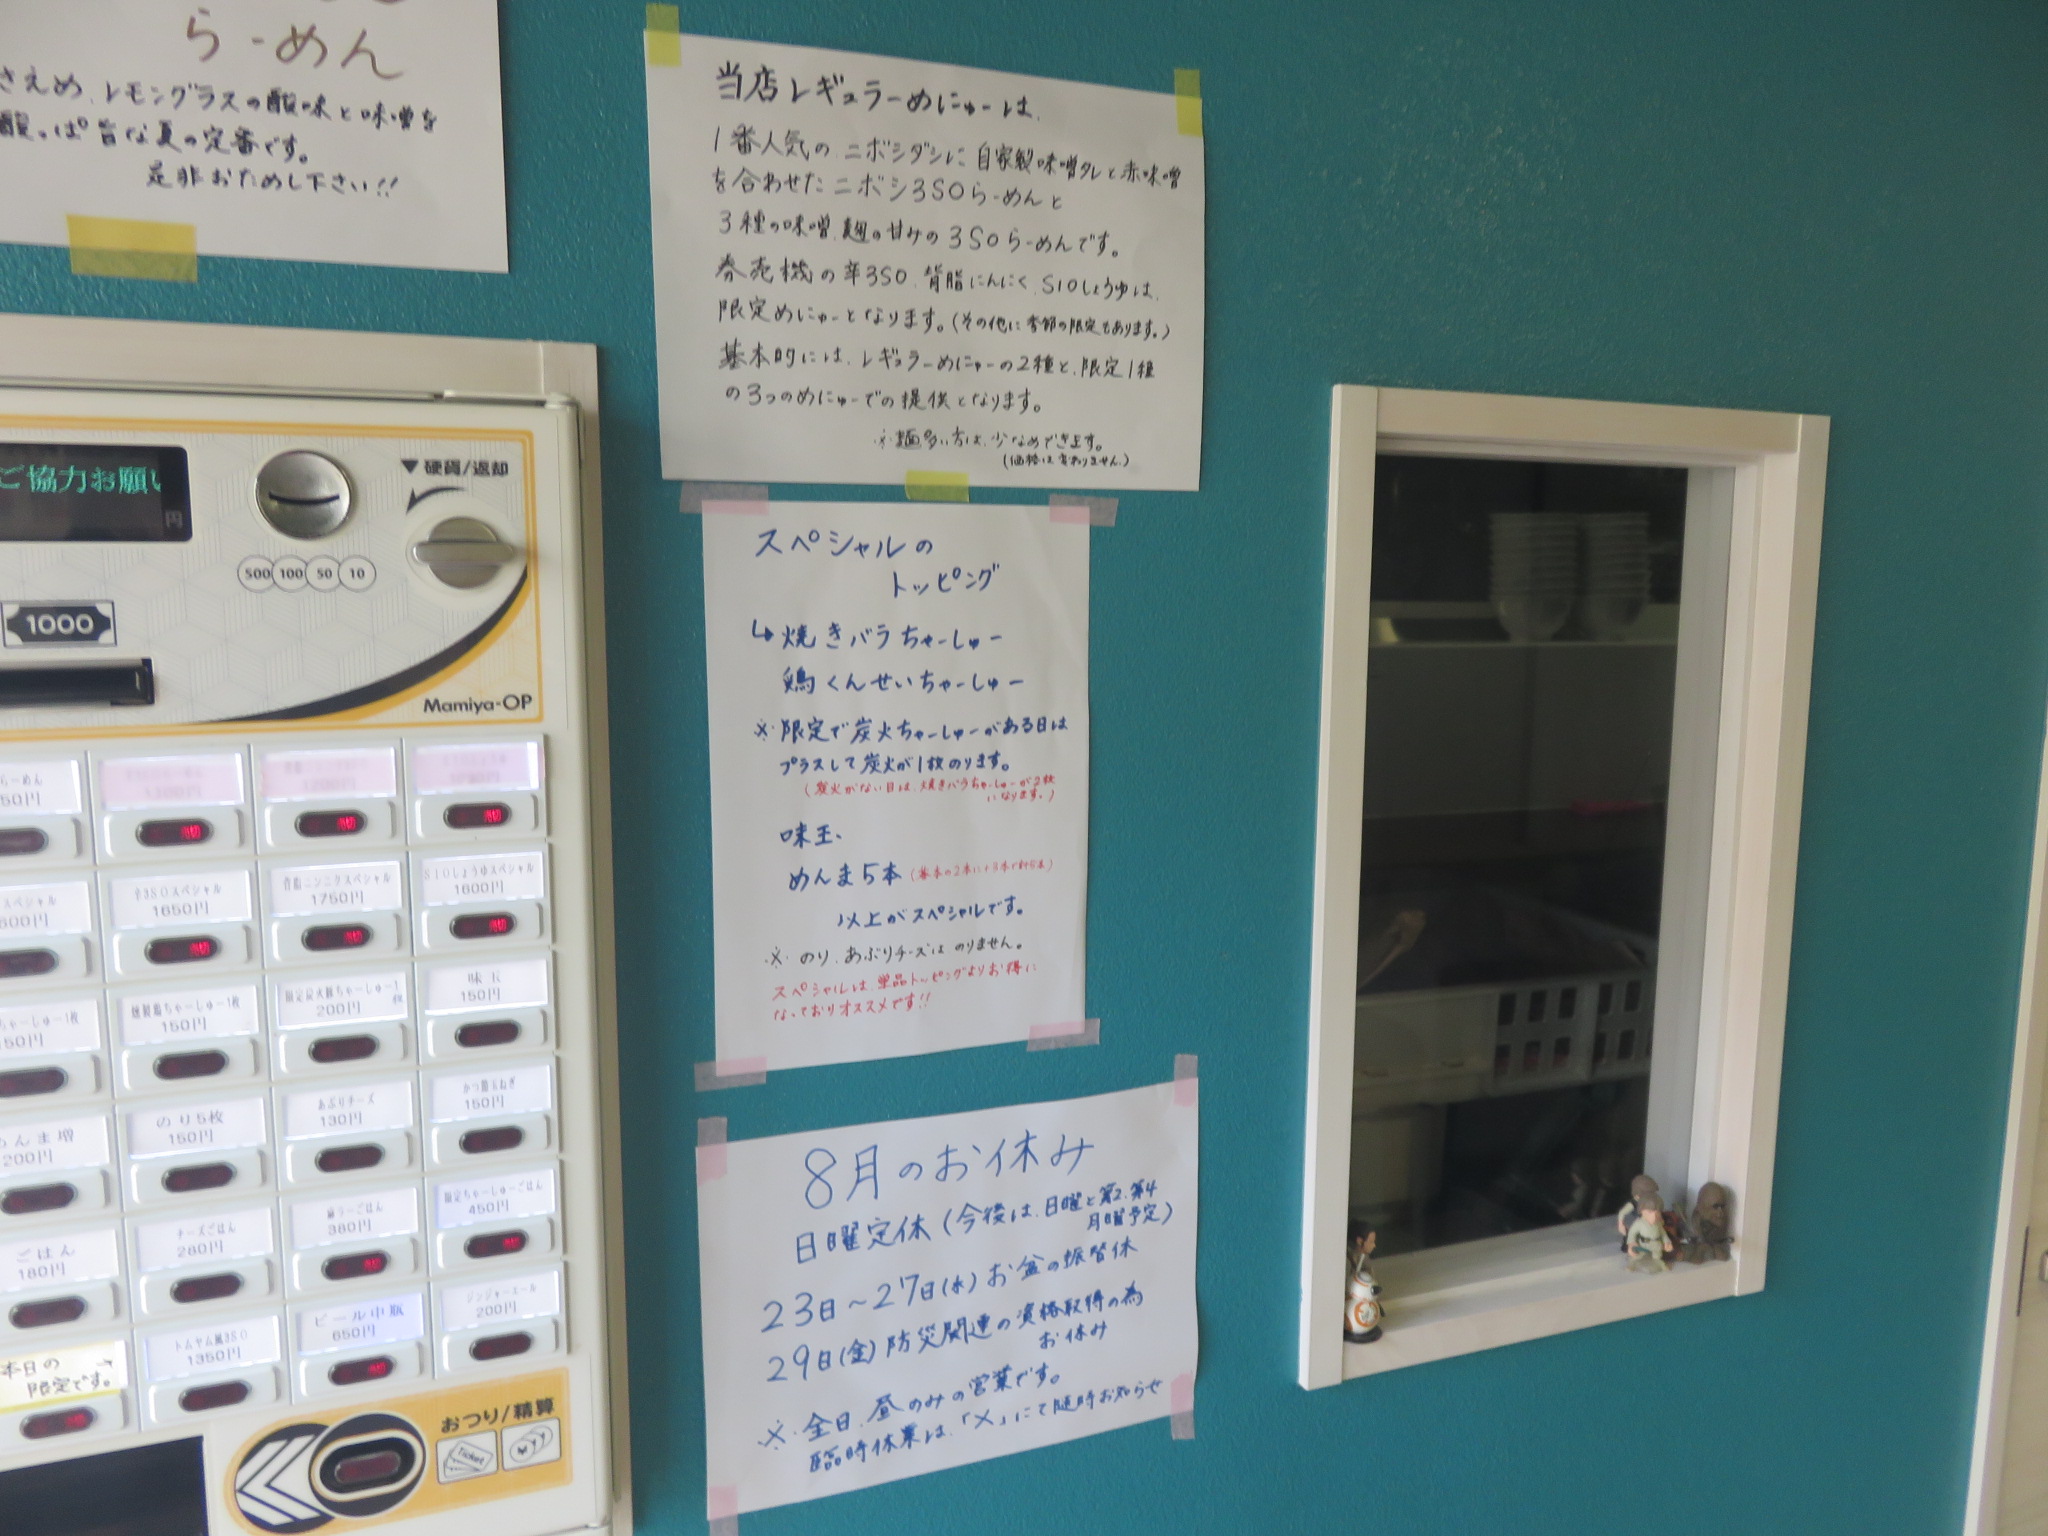 らーめん
さえめ、レモングラスの酸味と味噌を
酸っぱ旨な夏の定番です。
是非おためし下さい!!
当店レギュラーめにゅーは、
1番人気の ニボシダシに 自家製味噌タレと赤味噌
を合わせた ニボシ3SOらーめんと
3種の味噌、麹の甘みの 3SOらーめんです。
券売機の辛3SO、背脂にんにく、SIOしょうゆは、
限定めにゅーとなります。(その他に季節の限定もあります。)
基本的には、レギュラーめにゅーの2種と、限定1種
の3つのめにゅーでの提供となります。
※麺多い方は、少なめできます。
(価格は変わりません。)
スペシャルの
トッピング
↳焼きバラちゃーしゅー
鶏くんせいちゃーしゅー
※限定で炭火ちゃーしゅーがある日は
プラスして炭火が1枚のります。
(炭火がない日は、焼きバラちゃーしゅーが2枚
になります。)
味玉、
めんま5本
以上がスペシャルです。
※のり、あぶりチーズはのりません。
スペシャルは、単品トッピングよりお得に
なっておりオススメです!!
8月のお休み
日曜定休(今後は、日曜と第2、第4
月曜予定)
23日〜27日(水)お盆の振替休
29日(金)防災関連の資格取得の為
お休み
※全日、昼のみの営業です。
臨時休業は、「X」にて随時お知らせ
ご協力お願い
円
▼硬貨/返却
500 100 50 10
1000
Mamiya-OP
らーめん
50円
売切 売切 売切
スペシャル
600円
辛3SOスペシャル
1650円
背脂ニンニクスペシャル
1750円
SIOしょうゆスペシャル
1600円
売切 売切 売切
ちゃーしゅー1枚
150円
燻製鶏ちゃーしゅー1枚
150円
限定炭火豚ちゃーしゅー1枚
200円
味玉
150円
めんま増
200円
のり5枚
150円
あぶりチーズ
130円
かつ節玉ねぎ
150円
ごはん
180円
チーズごはん
280円
ごはん
380円
限定ちゃーしゅーごはん
450円
本日の
限定です。
トムヤム風3SO
1350円
ビール中瓶
650円
ジンジャーエール
200円
おつり/精算
Ticket